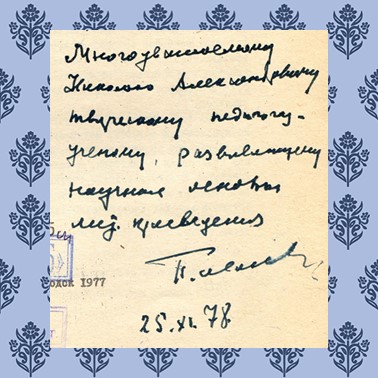 Многоуважаемому
Николаю Александровичу
творческому педагогу-
ученому, развивающему
научные основы
лит. краеведения
одск 1977
25.XI.78